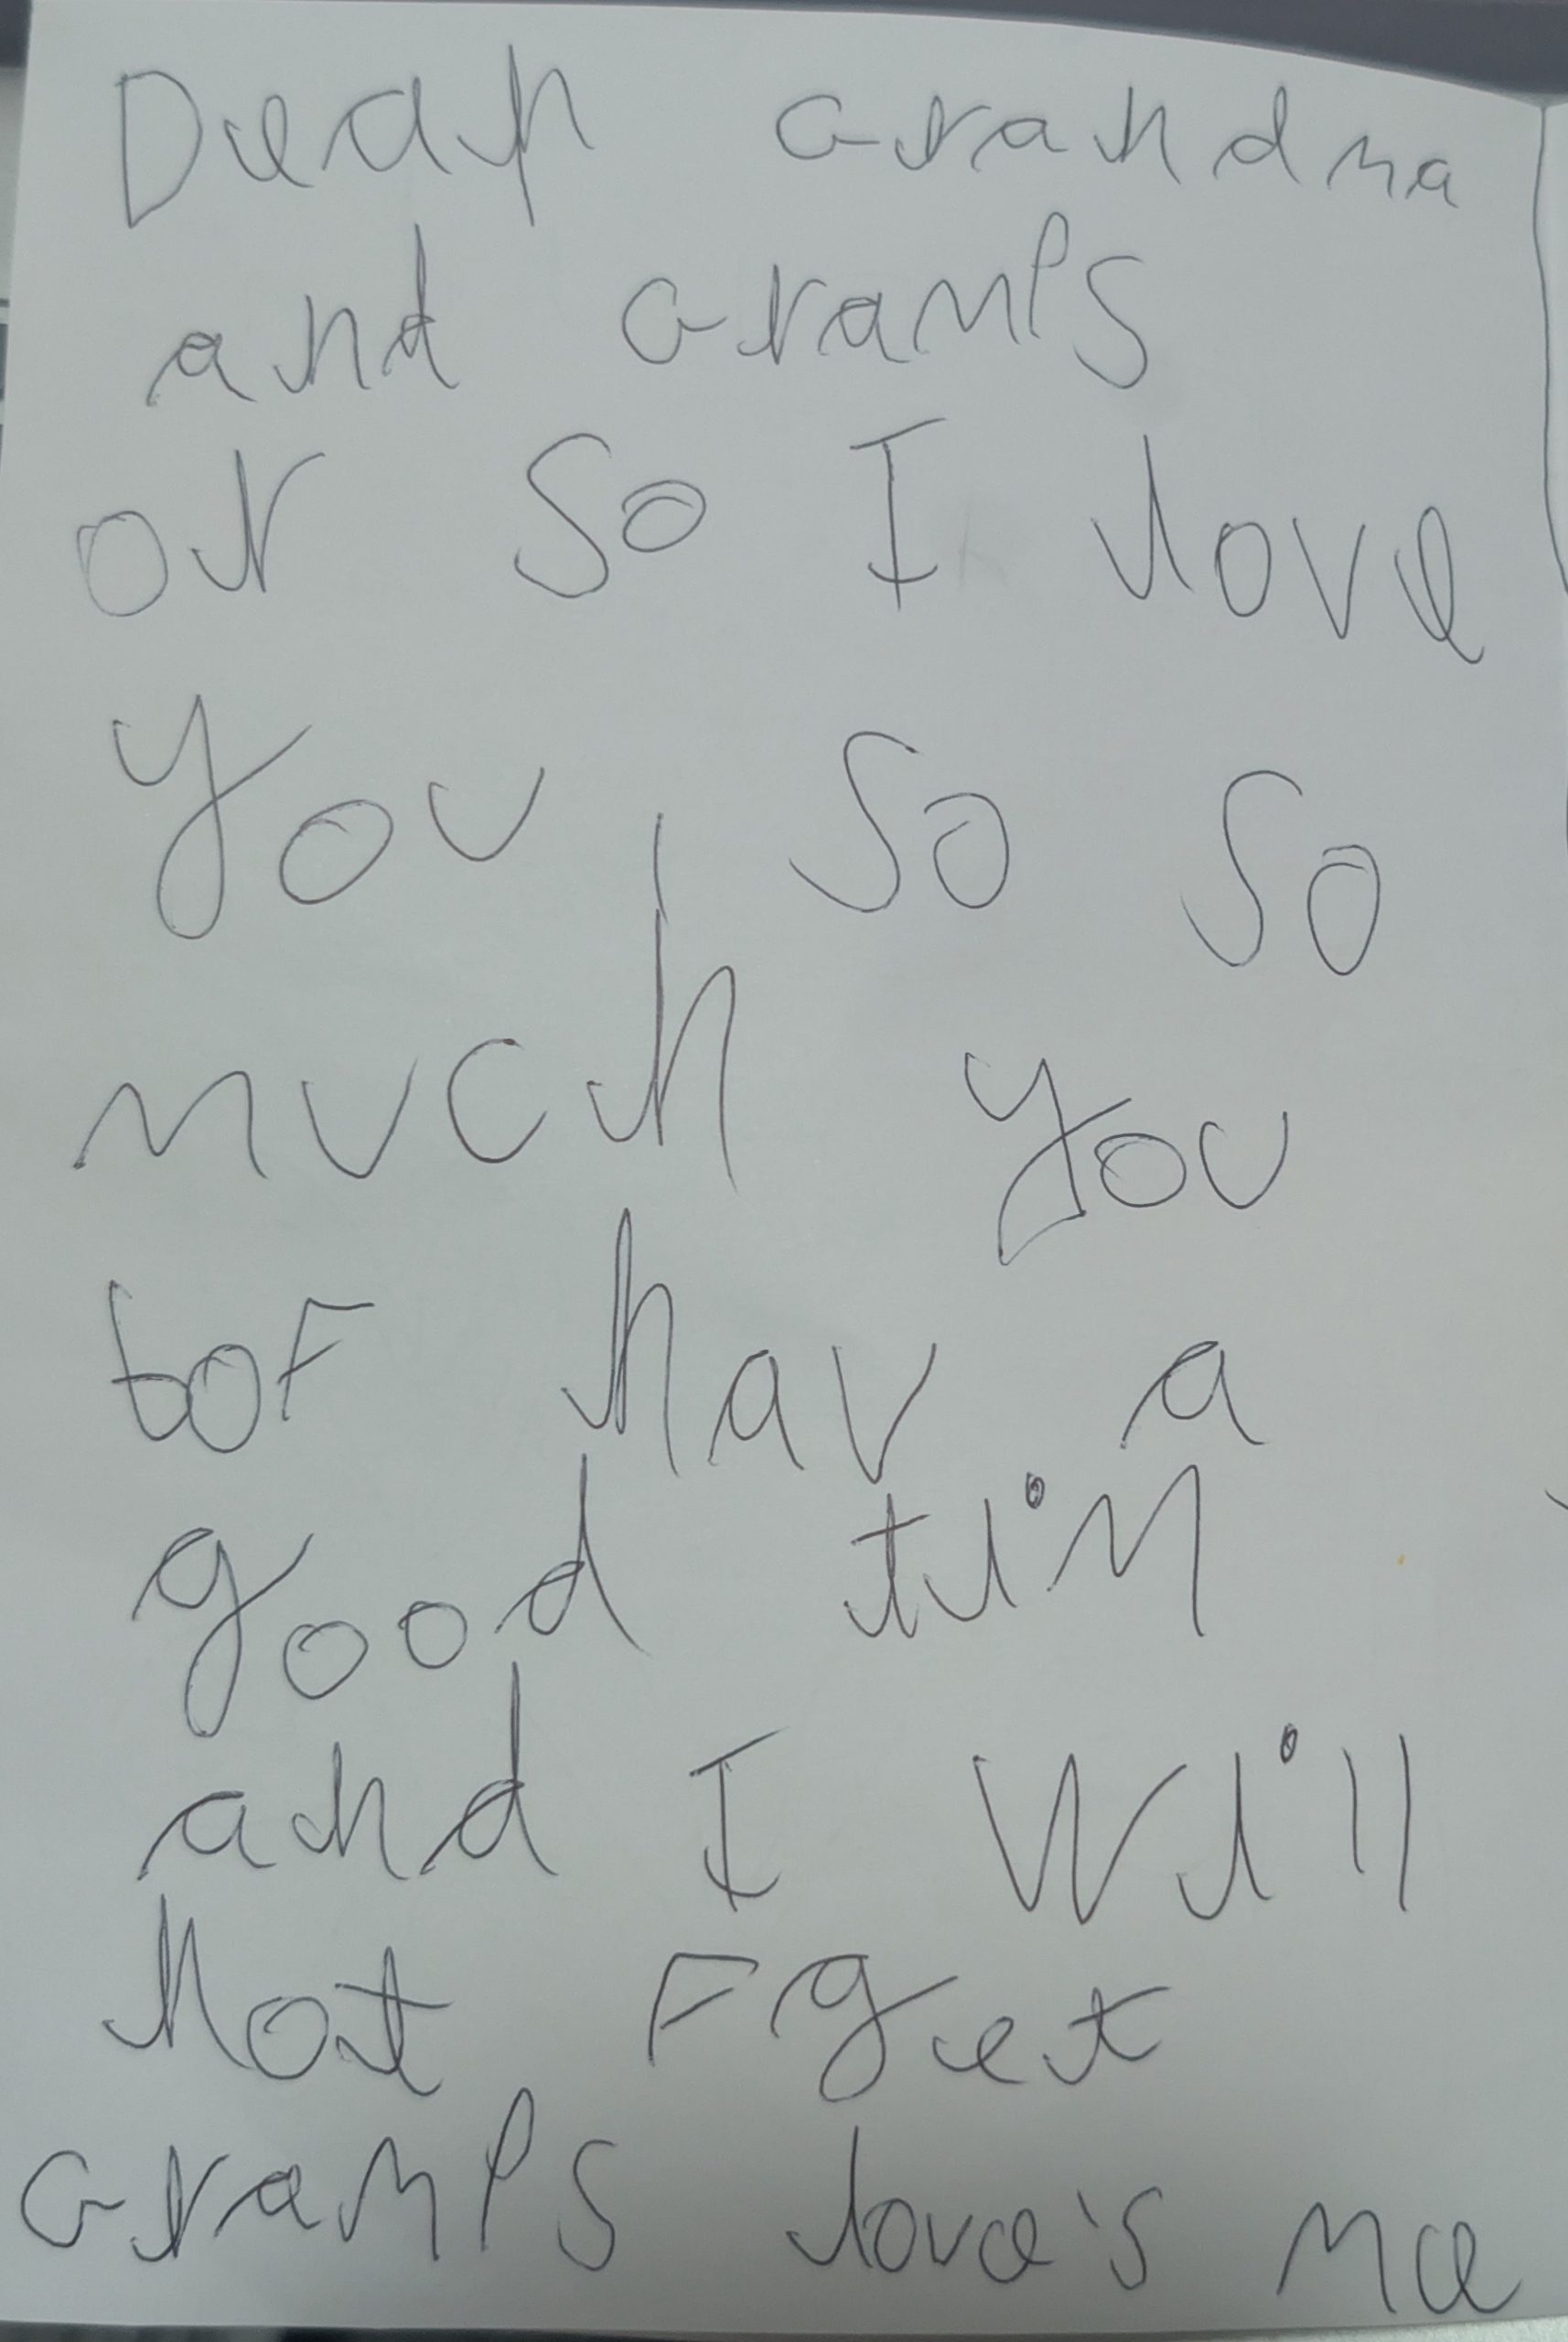 Dear Grandma
and Gramps
or so I love
you so so
much you
bof hav a
good tim
and I will
not Fget
Gramps love's me